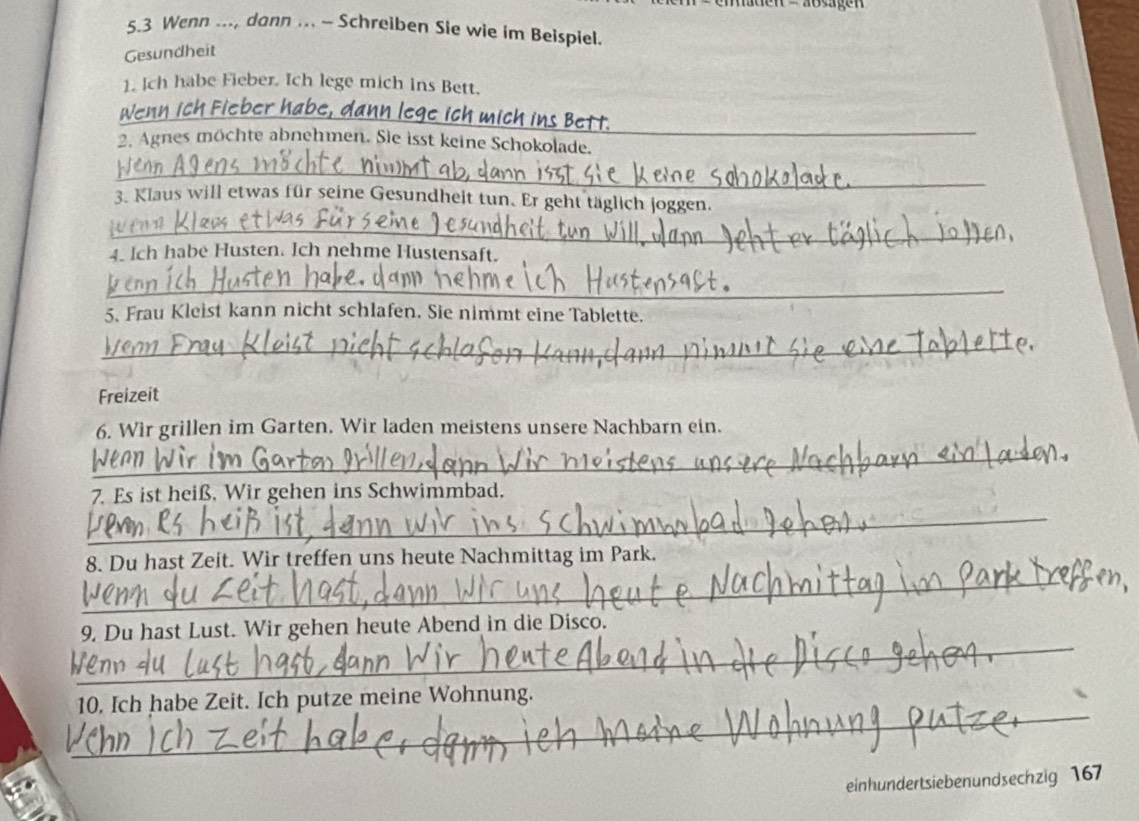 absagen
5.3 Wenn ..., dann ... – Schreiben Sie wie im Beispiel.
Gesundheit
1. Ich habe Fieber. Ich lege mich ins Bett.
Wenn ich Fieber habe, dann lege ich mich ins Bett.
2. Agnes möchte abnehmen. Sie isst keine Schokolade.
Wenn Agens möchte nimmt ab, dann isst sie keine schokolade.
3. Klaus will etwas für seine Gesundheit tun. Er geht täglich joggen.
wenn Klaus etwas für seine gesundheit tun will, dann geht er täglich joggen.
4. Ich habe Husten. Ich nehme Hustensaft.
Wenn ich Husten habe, dann nehme ich Hustensaft.
5. Frau Kleist kann nicht schlafen. Sie nimmt eine Tablette.
Wenn Frau Kleist nicht schlafen kann, dann nimmt sie eine Tablette.
Freizeit
6. Wir grillen im Garten. Wir laden meistens unsere Nachbarn ein.
Wenn Wir im Garten grillen, dann Wir meistens unsere Nachbarn einladen.
7. Es ist heiß. Wir gehen ins Schwimmbad.
Wenn es heiß ist, dann wir ins schwimmbad gehen.
8. Du hast Zeit. Wir treffen uns heute Nachmittag im Park.
Wenn du Zeit hast, dann Wir uns heute Nachmittag im Park treffen,
9. Du hast Lust. Wir gehen heute Abend in die Disco.
Wenn du Lust hast, dann Wir heute Abend in die Disco gehen.
10. Ich habe Zeit. Ich putze meine Wohnung.
Wenn ich Zeit habe, dann ich meine Wohnung putze.
einhundertsiebenundsechzig 167